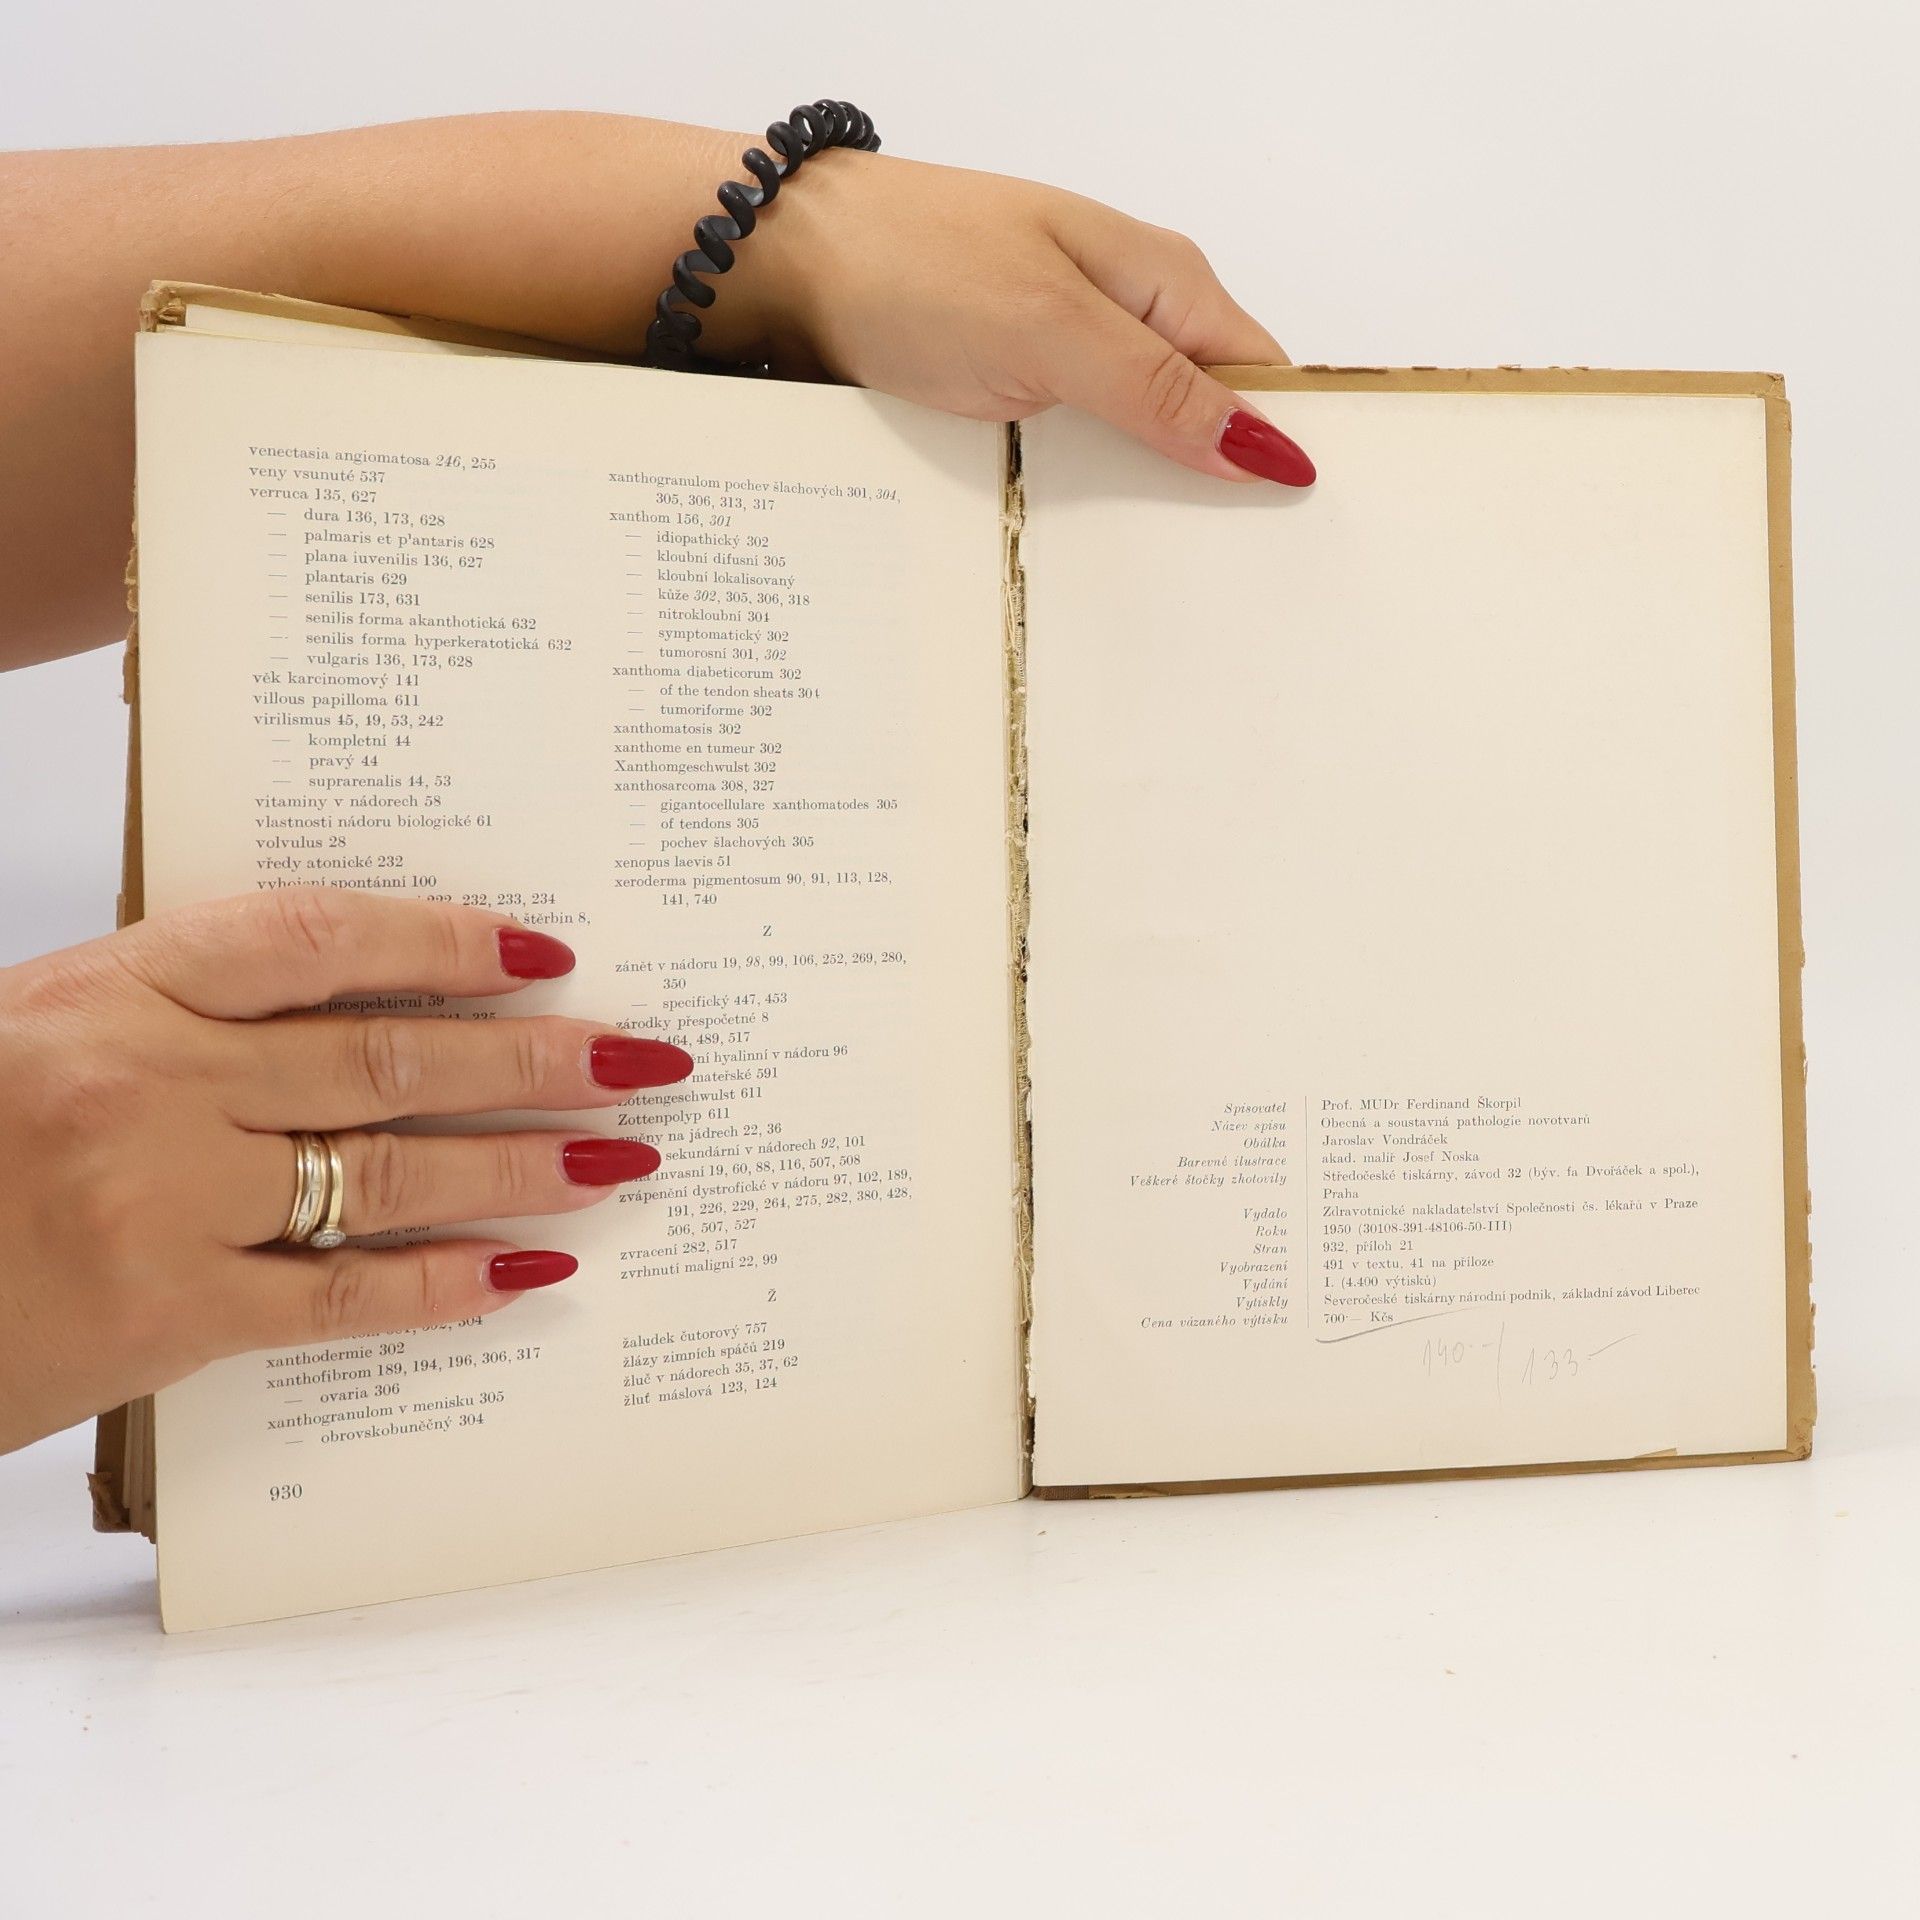 venectasia angiomatosa 246, 255
veny vsunuté 537
verruca 135, 627
— dura 136, 173, 628
— palmaris et p'antaris 628
— plana iuvenilis 136, 627
— plantaris 629
— senilis 173, 631
— senilis forma akanthotická 632
— senilis forma hyperkeratotická 632
— vulgaris 136, 173, 628
věk karcinomový 141
villous papilloma 611
virilismus 45, 49, 53, 242
— kompletní 44
— pravý 44
— suprarenalis 44, 53
vitaminy v nádorech 58
vlastnosti nádoru biologické 61
volvulus 28
vředy atonické 232
vyhojení spontánní 100
232, 233, 234
štěrbin 8,
prospektivní 59
xanthodermie 302
xanthofibrom 189, 194, 196, 306, 317
— ovaria 306
xanthogranulom v menisku 305
— obrovskobuněčný 304
930
xanthogranulom pochev šlachových 301, 304,
305, 306, 313, 317
xanthom 156, 301
— idiopathický 302
— kloubní difusní 305
— kloubní lokalisovaný
— kůže 302, 305, 306, 318
— nitrokloubní 304
— symptomatický 302
— tumorosní 301, 302
xanthoma diabeticorum 302
— of the tendon sheats 304
— tumoriforme 302
xanthomatosis 302
xanthome en tumeur 302
Xanthomgeschwulst 302
xanthosarcoma 308, 327
— gigantocellulare xanthomatodes 305
— of tendons 305
— pochev šlachových 305
xenopus laevis 51
xeroderma pigmentosum 90, 91, 113, 128,
141, 740
Z
zánět v nádoru 19, 98, 99, 106, 252, 269, 280,
350
— specifický 447, 453
zárodky přespočetné 8
464, 489, 517
hyalinní v nádoru 96
mateřské 591
Zottengeschwulst 611
Zottenpolyp 611
změny na jádrech 22, 36
sekundární v nádorech 92, 101
invasní 19, 60, 88, 116, 507, 508
zvápenění dystrofické v nádoru 97, 102, 189,
191, 226, 229, 264, 275, 282, 380, 428,
506, 507, 527
zvracení 282, 517
zvrhnutí maligní 22, 99
Ž
žaludek čutorový 757
žlázy zimních spáčů 219
žluč v nádorech 35, 37, 62
žluť máslová 123, 124
Spisovatel Prof. MUDr Ferdinand Škorpil
Název spisu Obecná a soustavná pathologie novotvarů
Obálka Jaroslav Vondráček
Barevné ilustrace akad. malíř Josef Noska
Veškeré štočky zhotovily Středočeské tiskárny, závod 32 (býv. fa Dvořáček a spol.),
Praha
Vydalo Zdravotnické nakladatelství Společnosti čs. lékařů v Praze
Roku 1950 (30108-391-48106-50-III)
Stran 932, příloh 21
Vyobrazení 491 v textu, 41 na příloze
Vydání I. (4.400 výtisků)
Vytiskly Severočeské tiskárny národní podnik, základní závod Liberec
Cena vázaného výtisku 700·— Kčs
140.- / 133.-